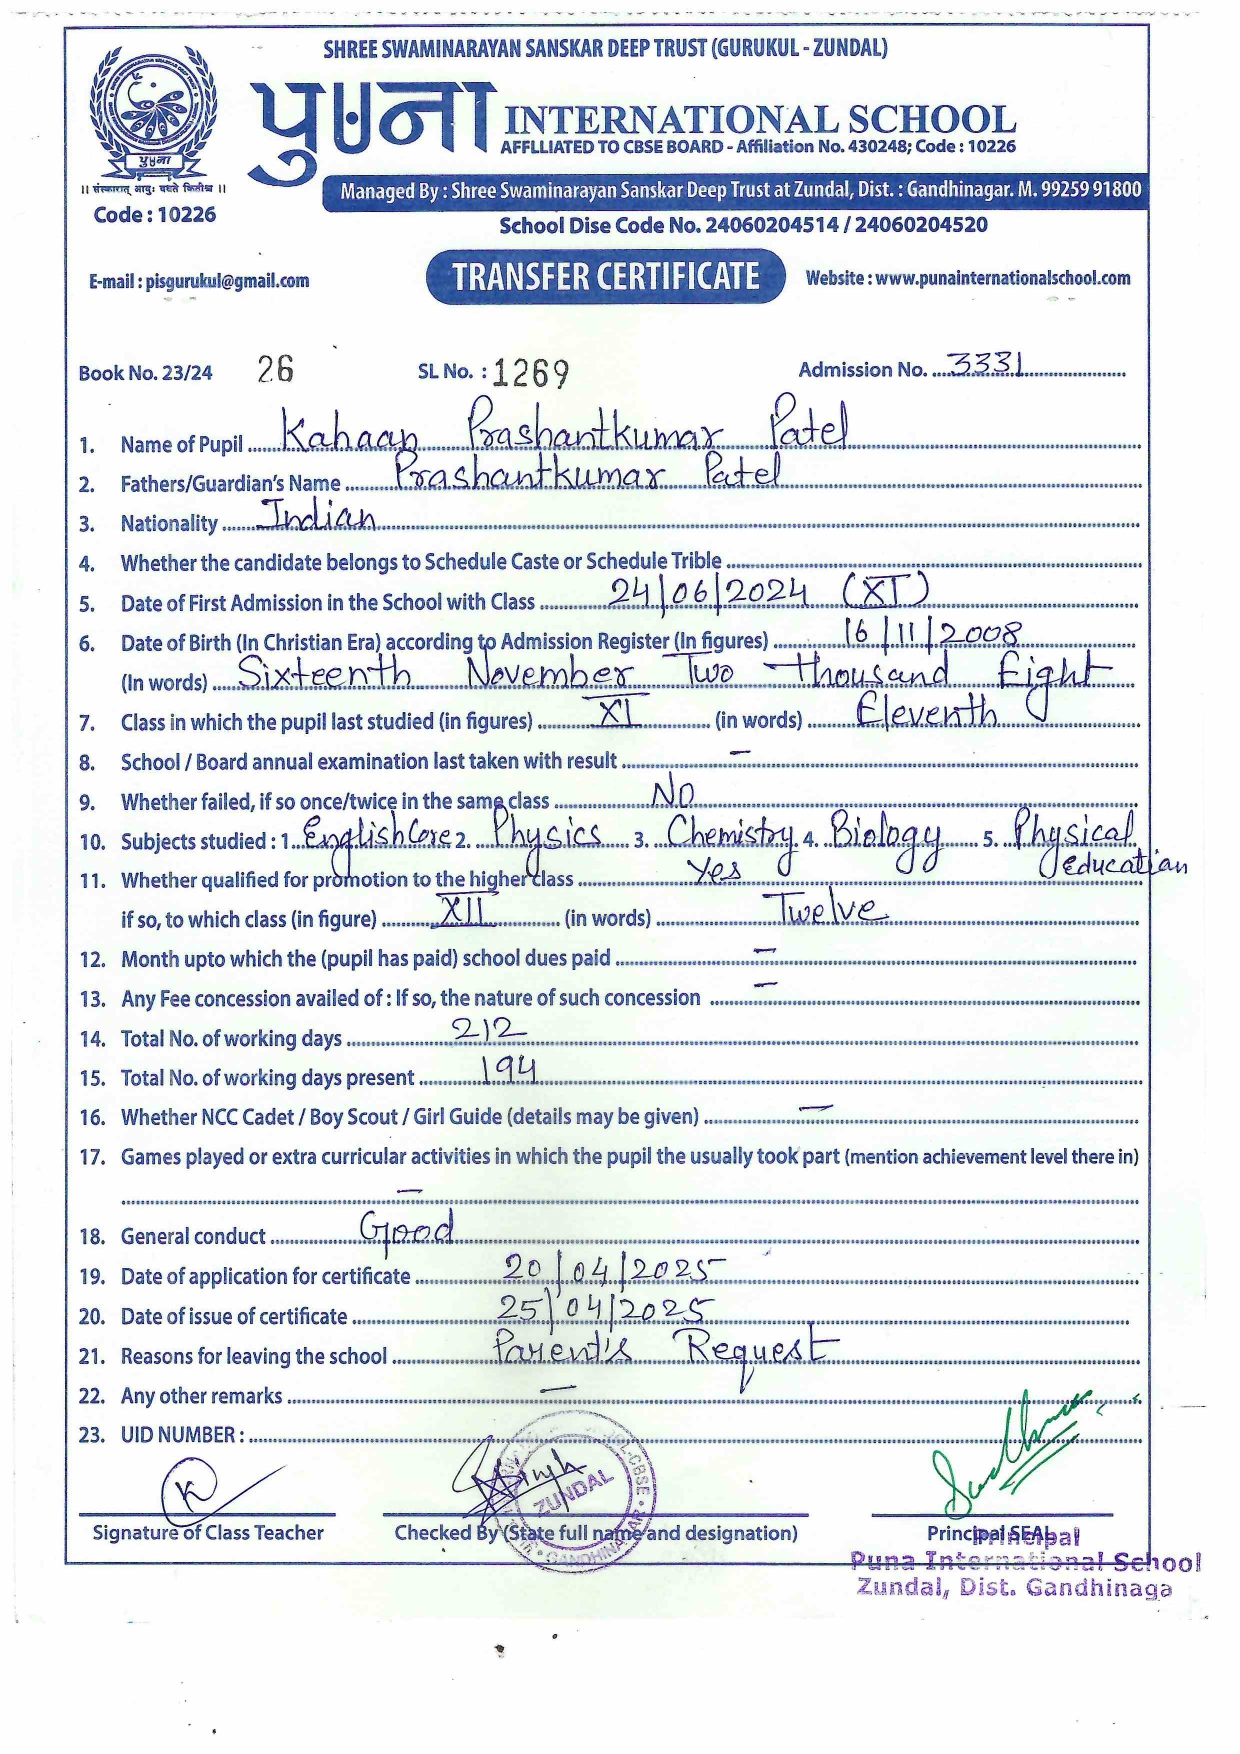 SHREE SWAMINARAYAN SANSKAR DEEP TRUST (GURUKUL - ZUNDAL)
પુના INTERNATIONAL SCHOOL
AFFLLIATED TO CBSE BOARD - Affiliation No. 430248; Code : 10226
Managed By : Shree Swaminarayan Sanskar Deep Trust at Zundal, Dist. : Gandhinagar. M. 99259 91800
Code : 10226
School Dise Code No. 24060204514 / 24060204520
E-mail : pisgurukul@gmail.com TRANSFER CERTIFICATE Website : www.punainternationalschool.com
Book No. 23/24 26 SL No. : 1269 Admission No. 3331
1. Name of Pupil Kahaan Prashantkumar Patel
2. Fathers/Guardian's Name Prashantkumar Patel
3. Nationality Indian
4. Whether the candidate belongs to Schedule Caste or Schedule Trible
5. Date of First Admission in the School with Class 24/06/2024 (XI)
6. Date of Birth (In Christian Era) according to Admission Register (In figures) 16/11/2008
(In words) Sixteenth November Two thousand Eight
7. Class in which the pupil last studied (in figures) XI (in words) Eleventh
8. School / Board annual examination last taken with result —
9. Whether failed, if so once/twice in the same class No
10. Subjects studied : 1. English Core 2. Physics 3. Chemistry 4. Biology 5. Physical education
11. Whether qualified for promotion to the higher class Yes
if so, to which class (in figure) XII (in words) Twelve
12. Month upto which the (pupil has paid) school dues paid —
13. Any Fee concession availed of : If so, the nature of such concession —
14. Total No. of working days 212
15. Total No. of working days present 194
16. Whether NCC Cadet / Boy Scout / Girl Guide (details may be given) —
17. Games played or extra curricular activities in which the pupil the usually took part (mention achievement level there in)
—
18. General conduct Good
19. Date of application for certificate 20/04/2025
20. Date of issue of certificate 25/04/2025
21. Reasons for leaving the school Parent's Request
22. Any other remarks —
23. UID NUMBER :
ZUNDAL
Signature of Class Teacher Checked By (State full name and designation) Principal SEAL
Principal
Puna International School
Zundal, Dist. Gandhinaga